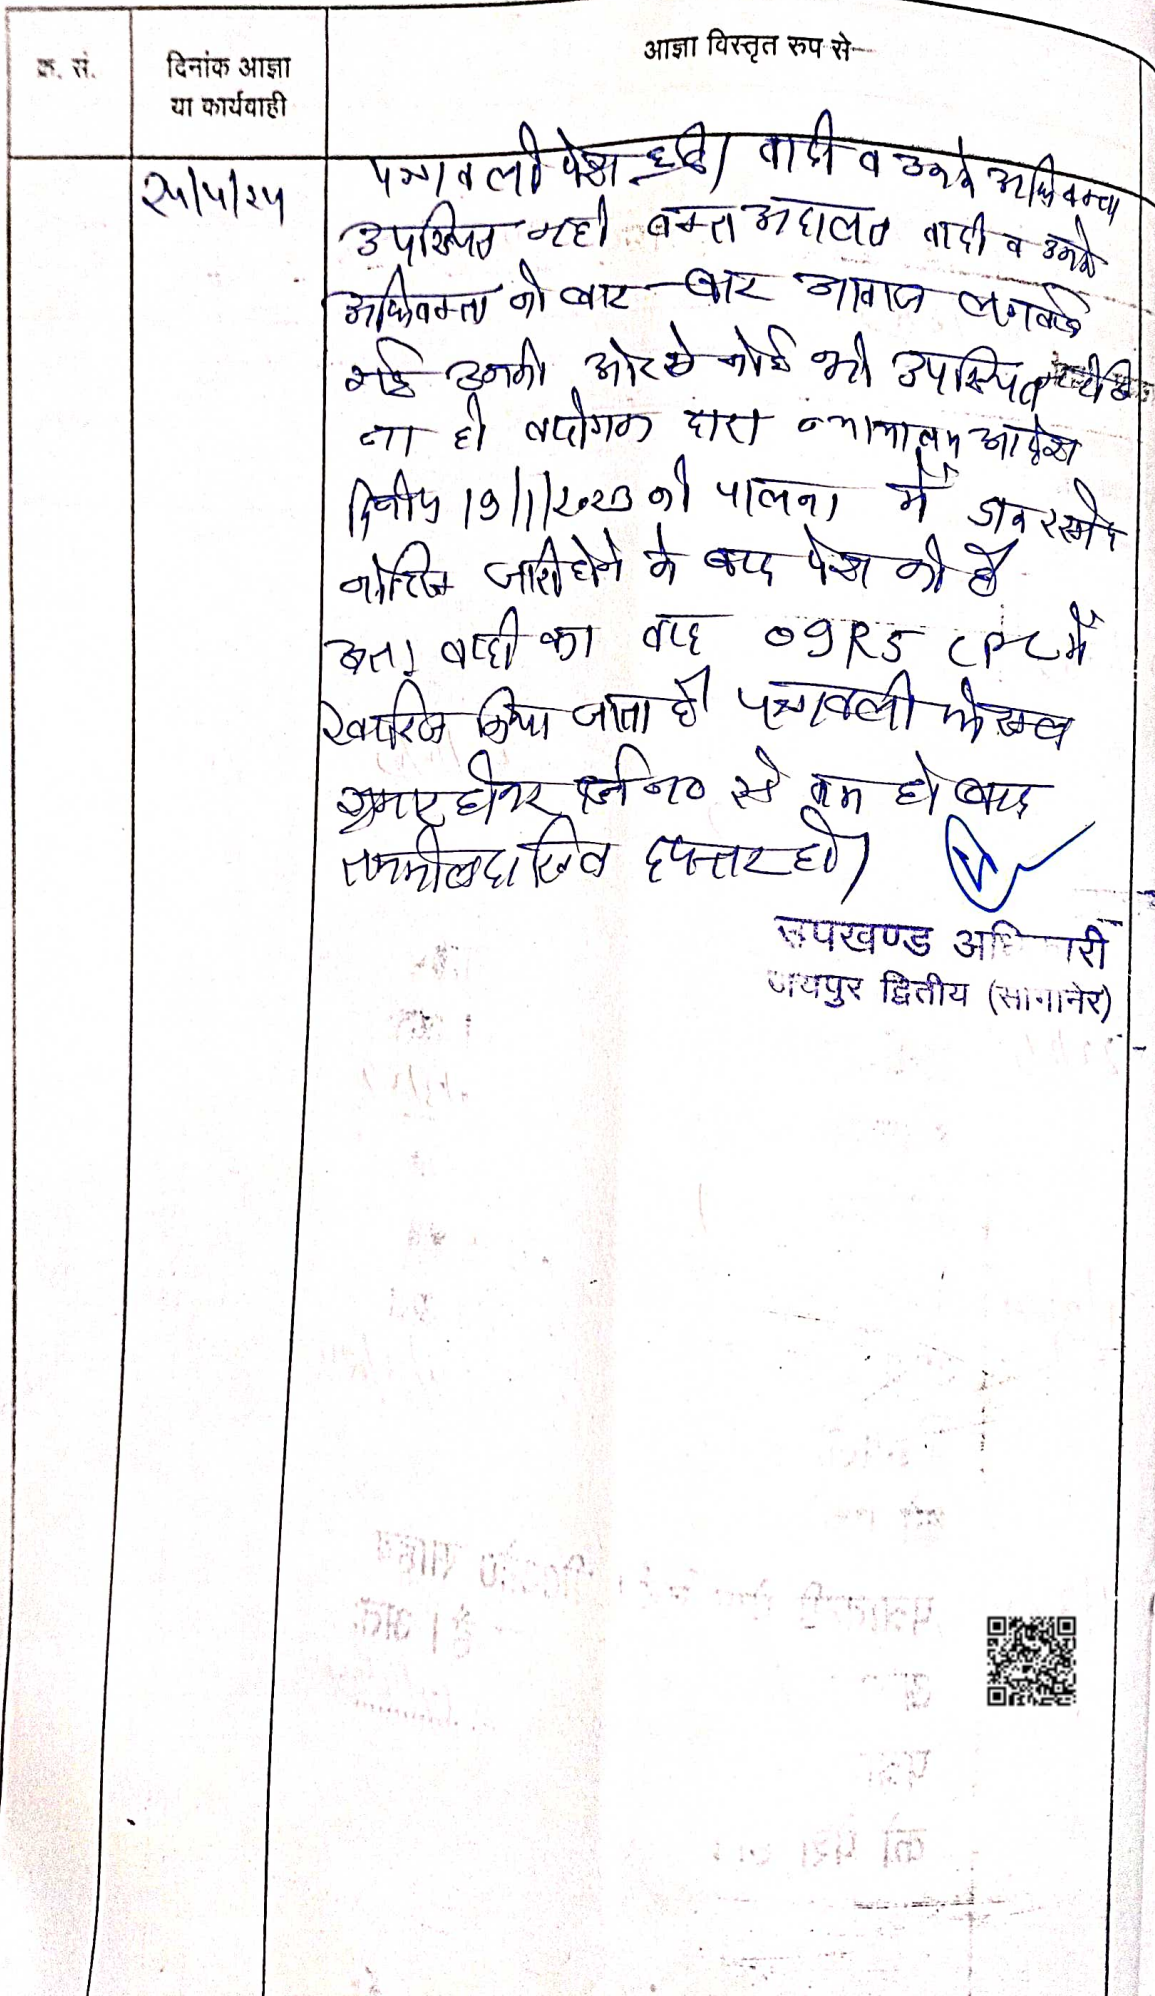 क्र. सं.
दिनांक आज्ञा
या कार्यवाही
आज्ञा विस्तृत रुप से—
पत्रावली पेश हुई। वादी व उनके अधिवक्ता
उपस्थित नही वक्त अदालत वादी व उनके
अधिवक्ता को बार-बार आवाज लगवाई
गई उनकी ओर से कोई भी उपस्थित
ना ही वादीगण द्वारा न्यायालय आदेश
दिनांक 19/1/2023 की पालना में डाक रसीद
नोटिस जारी होने के बाद पेश की है
अतः वादी का वाद O9R5 CPC में
खारिज किया जाता है। पत्रावली फैसल
शुमार होकर नं० से कम हो बाद
तकमील दाखिल दफ्तर हो।
उपखण्ड अधिकारी
जयपुर द्वितीय (सांगानेर)